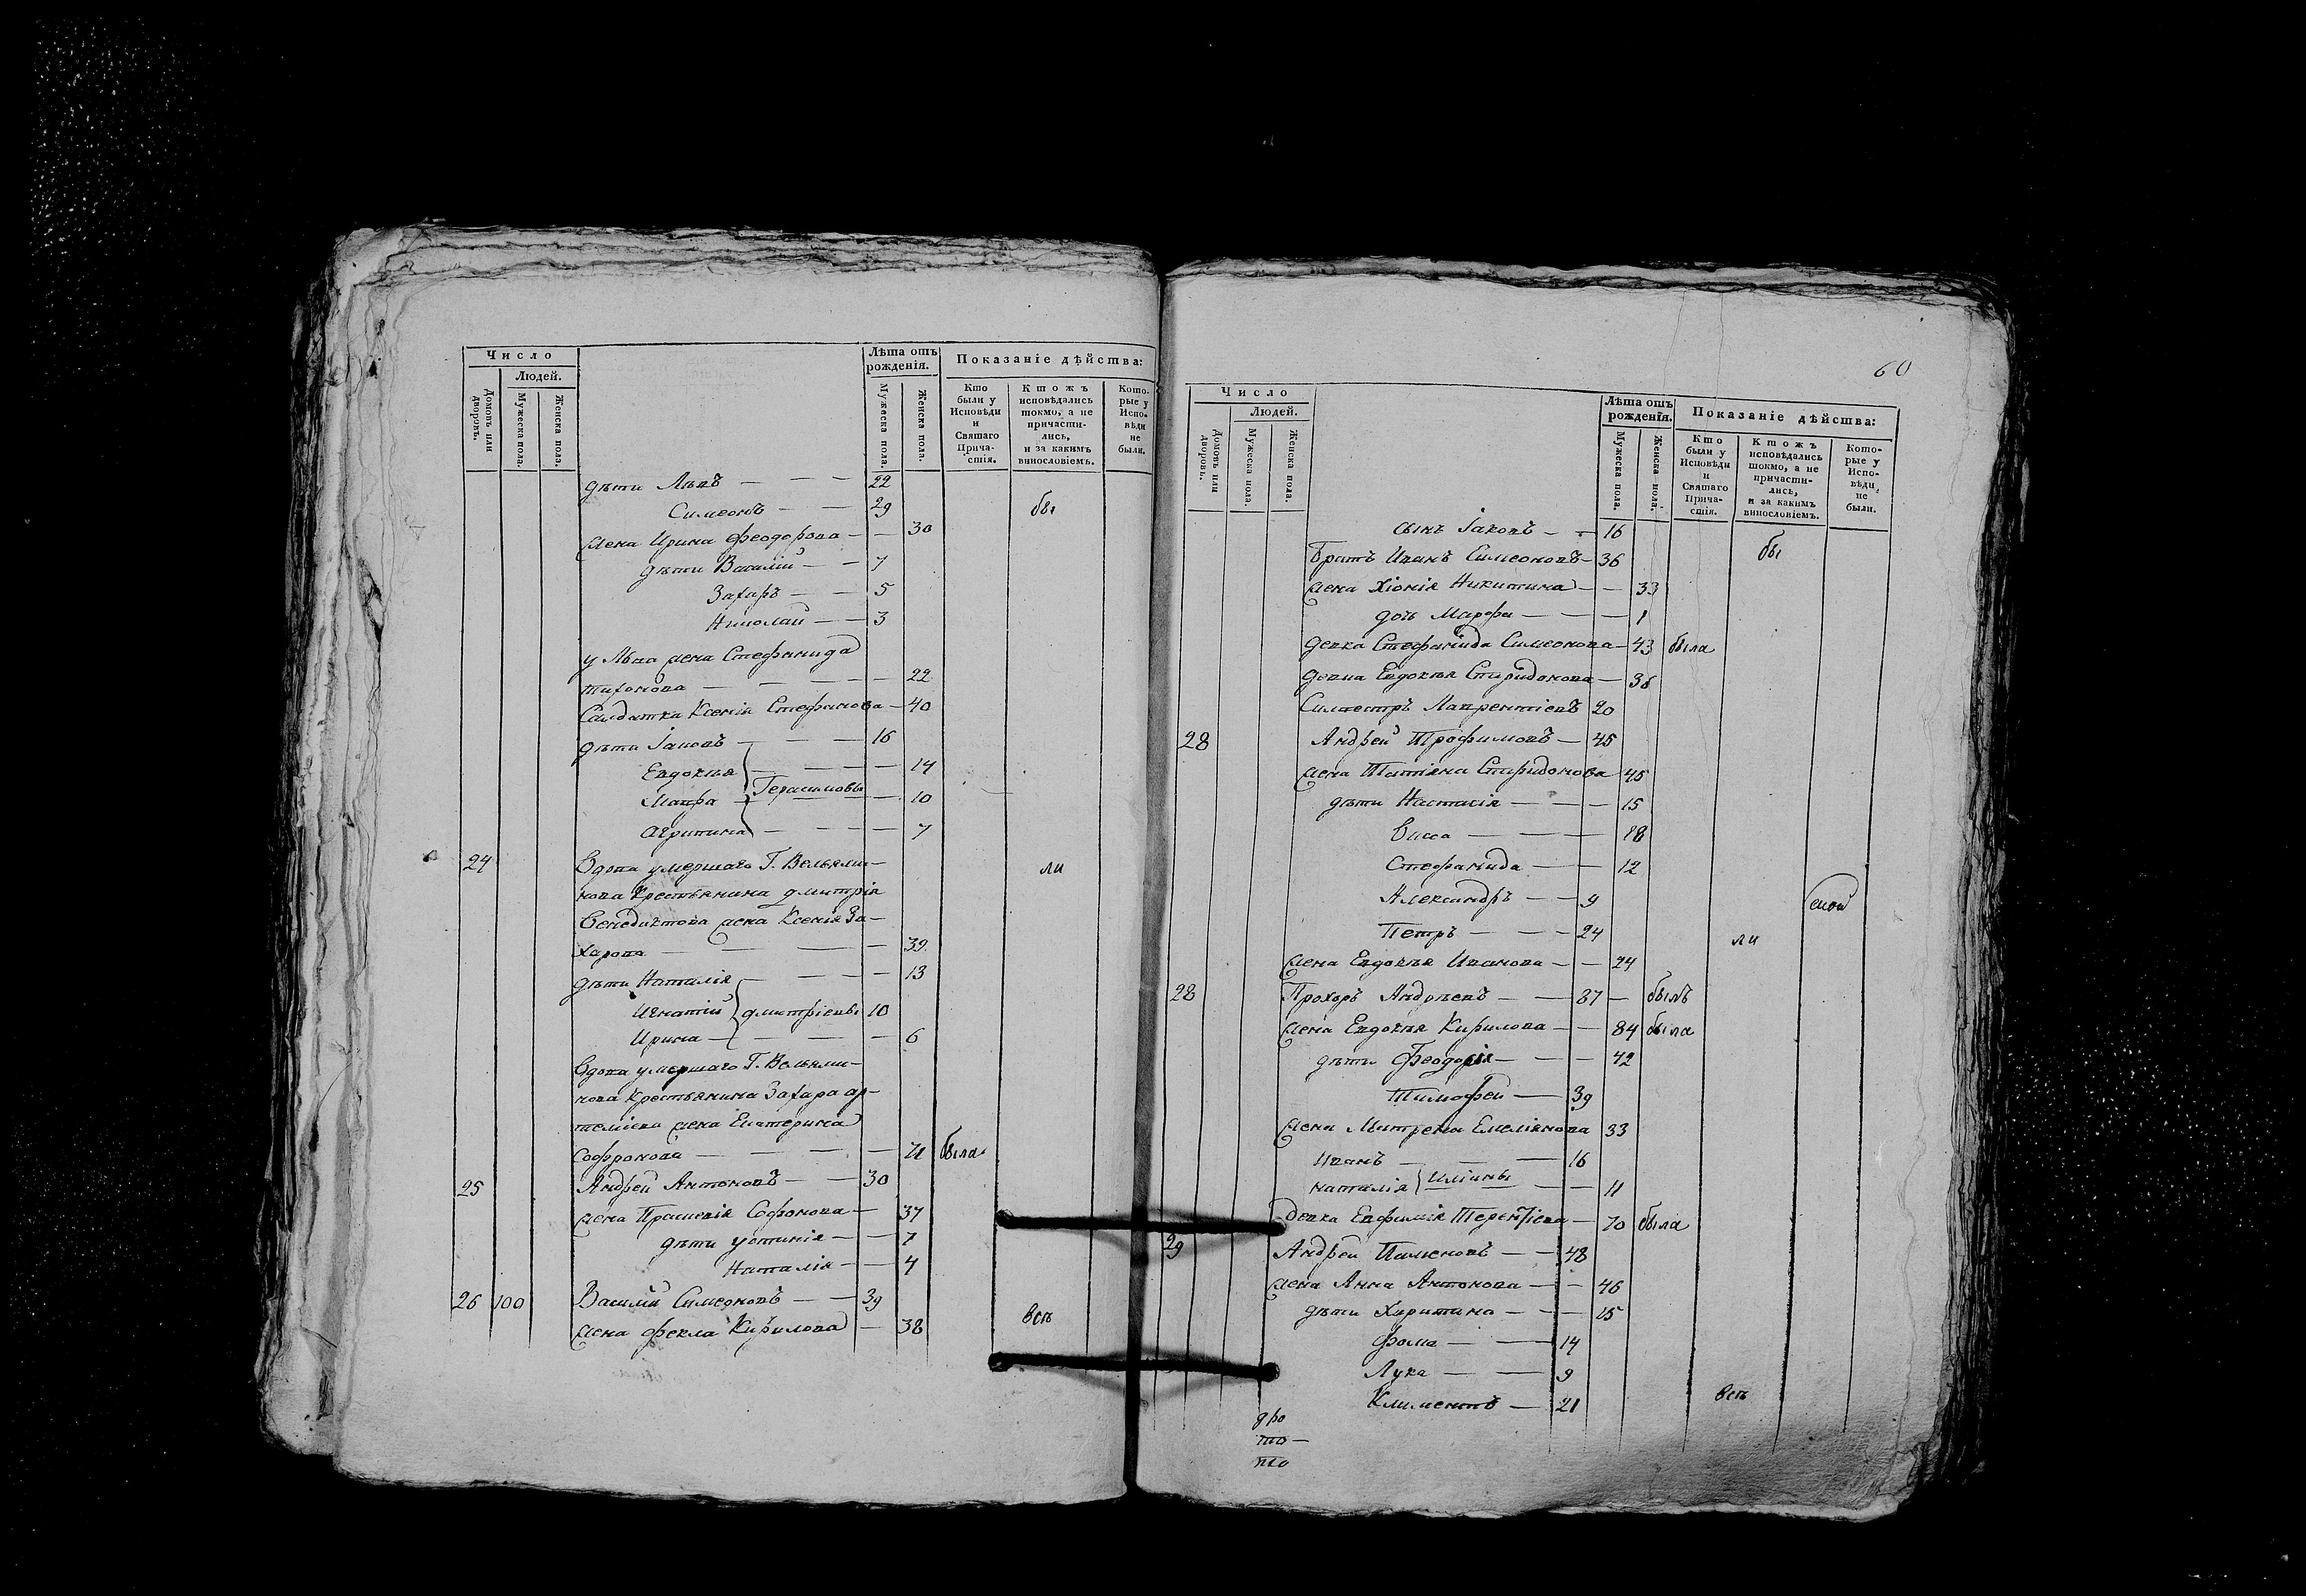 Число
Людей.
Домовъ или дворовъ.
Мужеска пола.
Женска пола.
Лѣта отъ рожденія.
Мужеска пола.
Женска пола.
Показаніе дѣйства:
Кто были у Исповѣди и Святаго Причастія.
Ктожъ исповѣдались токмо, а не причастились, и за какимъ винословіемъ.
Которые у Исповѣди не были.
дѣти Левъ — — — 22
Симеонъ — — 29 бы
жена Ирина Феодорова — — 30
дѣти Василій — — 7
Захаръ — — 5
Николай — — 3
у Льва жена Стефанида
Тихонова — — — — — 22
Салдатка Ксенія Стефанова — 40
дѣти Іаковъ — — — 16
Евдокія — — — — 14
Мавра Герасимовы — 10
Агрипина — — — — 7
24 Вдова умершаго Г. Вельями- ли
нова Крестьянина Дмитрія
Венедиктова жена Ксенія За-
харова — — — — 39
дѣти Наталія — — — — 13
Игнатій Дмитріевы 10
Ирина — — — — — 6
Вдова умершаго Г. Вельями-
нова Крестьянина Захара Ар-
теміева жена Екатерина
Софронова — — — — — 71 была
25 Андрей Антоновъ — — 30
жена Прасковія Софонова — 37
дѣти Устинія — — 7
Наталія — — 4
26 100 Василій Симеоновъ — — 39
жена Фекла Кирилова — 38 всѣ
60
Число
Людей.
Домовъ или дворовъ.
Мужеска пола.
Женска пола.
Лѣта отъ рожденія.
Мужеска пола.
Женска пола.
Показаніе дѣйства:
Кто были у Исповѣди и Святаго Причастія.
Ктожъ исповѣдались токмо, а не причастились, и за какимъ винословіемъ.
Которые у Исповѣди не были.
сынъ Іаковъ — — 16
Братъ Иванъ Симеоновъ — 36 бы
жена Хіонія Никитина — — 33
дочь Марфа — — — 1
девка Стефанида Симеонова — 43 была
девка Евдокія Спиридонова — 36
Силвестръ Лаврентіевъ 20
28 Андрей Трофимовъ — 45
жена Татіана Спиридонова 45
дѣти Настасія — — — 15
Васса — — — 18
Стефанида — — 12
Александръ — — 9
Петръ — — — 24 ли
жена Евдокія Иванова — — 24
28 Прохоръ Авдѣевъ — — 87 — былъ
жена Евдокія Кирилова — — 84 была
дѣти Феодосія — — — 42
Тимофей — 39
жена Митрена Емеліянова 33
Иванъ — — — 16
Наталія Иліины — — 11
Девка Евфимія Терентіева — 70 была
29 Андрей Пименовъ — — 48
жена Анна Антонова — — 46
дѣти Харитина — — — 15
Фома — — 14
Лука — — 9
Климентъ — 21 всѣ